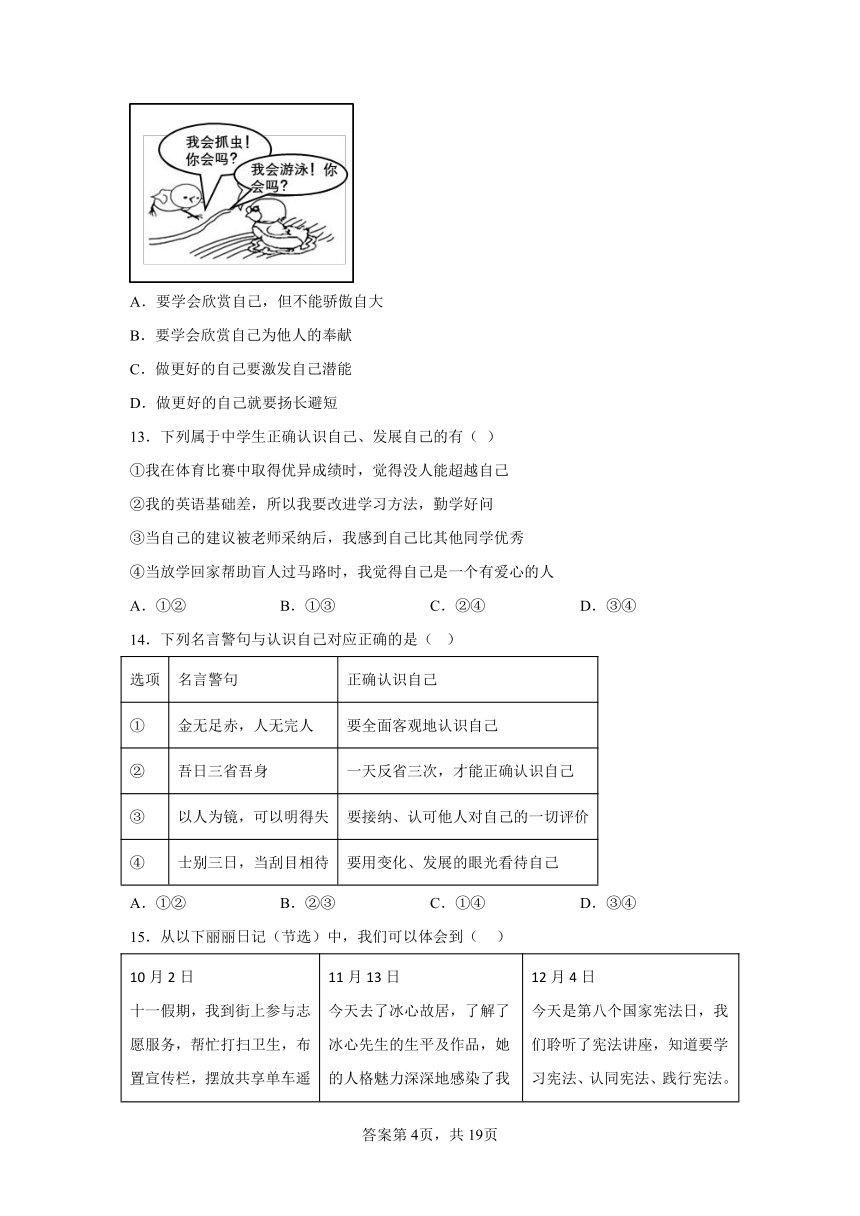 我会抓虫!
你会吗?
我会游泳!你
会吗?
A.要学会欣赏自己,但不能骄傲自大
B.要学会欣赏自己为他人的奉献
C.做更好的自己要激发自己潜能
D.做更好的自己就要扬长避短
13.下列属于中学生正确认识自己、发展自己的有( )
①我在体育比赛中取得优异成绩时,觉得没人能超越自己
②我的英语基础差,所以我要改进学习方法,勤学好问
③当自己的建议被老师采纳后,我感到自己比其他同学优秀
④当放学回家帮助盲人过马路时,我觉得自己是一个有爱心的人
A.①② B.①③ C.②④ D.③④
14.下列名言警句与认识自己对应正确的是( )
选项 名言警句 正确认识自己
① 金无足赤,人无完人 要全面客观地认识自己
② 吾日三省吾身 一天反省三次,才能正确认识自己
③ 以人为镜,可以明得失 要接纳、认可他人对自己的一切评价
④ 士别三日,当刮目相待 要用变化、发展的眼光看待自己
A.①② B.②③ C.①④ D.③④
15.从以下丽丽日记(节选)中,我们可以体会到( )
10月2日
十一假期,我到街上参与志
愿服务,帮忙打扫卫生,布
置宣传栏,摆放共享单车遥
11月13日
今天去了冰心故居,了解了
冰心先生的生平及作品,她
的人格魅力深深地感染了我
12月4日
今天是第八个国家宪法日,我
们聆听了宪法讲座,知道要学
习宪法、认同宪法、践行宪法。
答案第4页,共19页